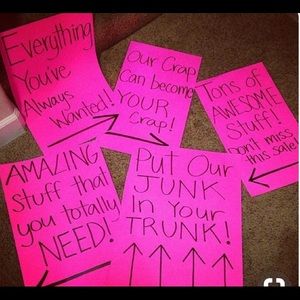 Everything
You've
Always
Wanted!
Our Crap
Can become
YOUR
Crap!
Tons of
AWESOME
Stuff!
Don't miss
this sale!
AMAZING
Stuff that
you totally
NEED!
Put Our
JUNK
In Your
TRUNK!